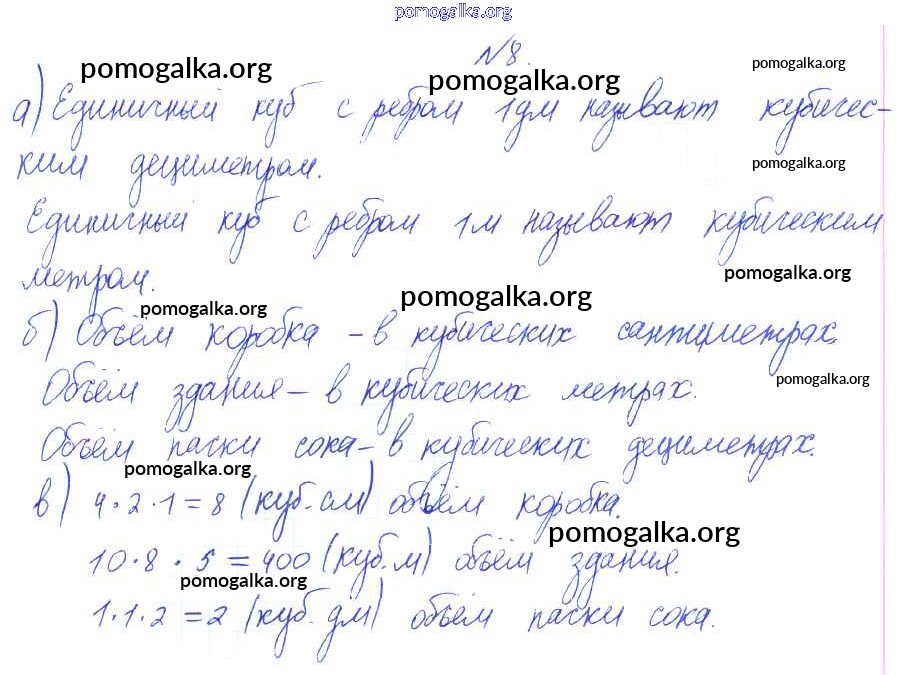 pomogalka.org
№8.
pomogalka.org pomogalka.org pomogalka.org
а) Единичный куб с ребром 1дм называют кубичес-
ким дециметром.
pomogalka.org
Единичный куб с ребром 1м называют кубическим
метром.
pomogalka.org
pomogalka.org pomogalka.org
б) Объём коробка – в кубических сантиметрах.
Объём здания – в кубических метрах.
pomogalka.org
Объём пачки сока – в кубических дециметрах.
pomogalka.org
в) 4·2·1=8 (куб.см) объём коробка.
pomogalka.org
10·8·5=400 (куб.м) объём здания.
pomogalka.org
1·1·2=2 (куб.дм) объём пачки сока.